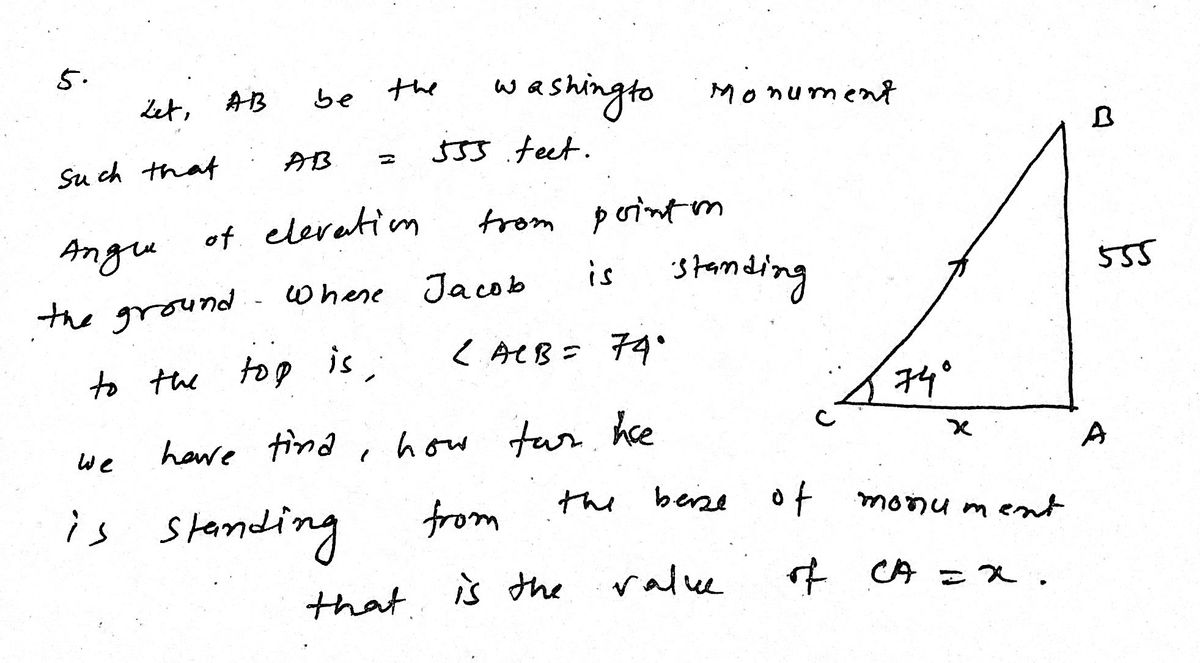 5.
Let, AB be the washingto Monument
such that AB = 555 feet.
Angle of elevation from point on
the ground where Jacob is standing
to the top is, ∠ACB = 74°
we have find, how far hce
is standing from the base of monument
that is the value of CA = x.
B
555
74°
C x A